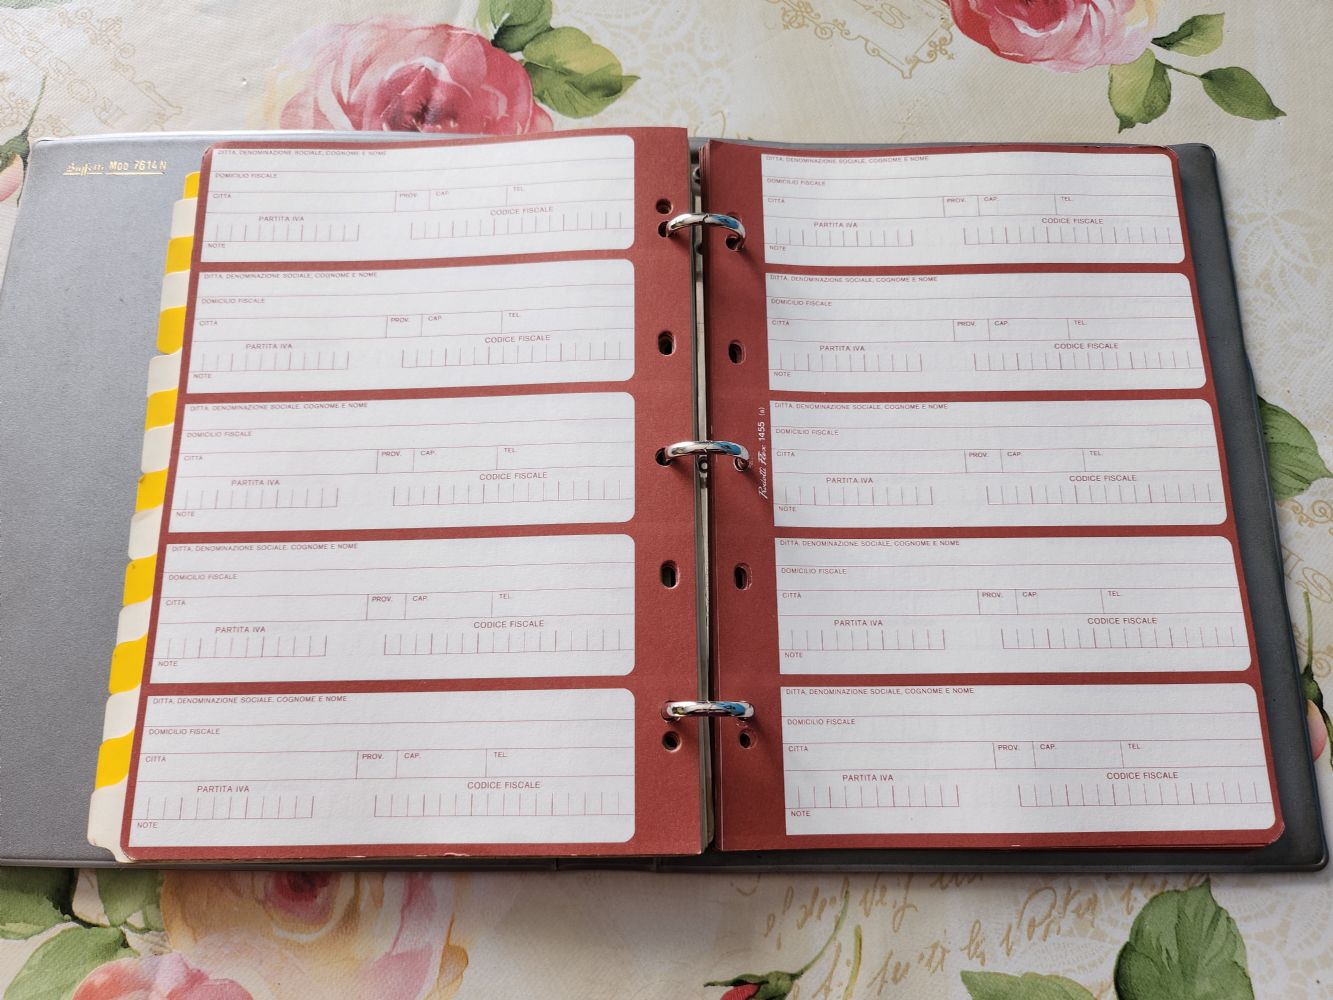 Buffetti MOD 7614 N
DITTA, DENOMINAZIONE SOCIALE, COGNOME E NOME
DOMICILIO FISCALE
CITTÀ PROV. CAP. TEL.
PARTITA IVA CODICE FISCALE
NOTE
DITTA, DENOMINAZIONE SOCIALE, COGNOME E NOME
DOMICILIO FISCALE
CITTÀ PROV. CAP. TEL.
PARTITA IVA CODICE FISCALE
NOTE
DITTA, DENOMINAZIONE SOCIALE, COGNOME E NOME
DOMICILIO FISCALE
CITTÀ PROV. CAP. TEL.
PARTITA IVA CODICE FISCALE
NOTE
DITTA, DENOMINAZIONE SOCIALE, COGNOME E NOME
DOMICILIO FISCALE
CITTÀ PROV. CAP. TEL.
PARTITA IVA CODICE FISCALE
NOTE
DITTA, DENOMINAZIONE SOCIALE, COGNOME E NOME
DOMICILIO FISCALE
CITTÀ PROV. CAP. TEL.
PARTITA IVA CODICE FISCALE
NOTE
DITTA, DENOMINAZIONE SOCIALE, COGNOME E NOME
DOMICILIO FISCALE
CITTÀ PROV. CAP. TEL.
PARTITA IVA CODICE FISCALE
NOTE
DITTA, DENOMINAZIONE SOCIALE, COGNOME E NOME
DOMICILIO FISCALE
CITTÀ PROV. CAP. TEL.
PARTITA IVA CODICE FISCALE
NOTE
DITTA, DENOMINAZIONE SOCIALE, COGNOME E NOME
DOMICILIO FISCALE
CITTÀ PROV. CAP. TEL.
PARTITA IVA CODICE FISCALE
NOTE
DITTA, DENOMINAZIONE SOCIALE, COGNOME E NOME
DOMICILIO FISCALE
CITTÀ PROV. CAP. TEL.
PARTITA IVA CODICE FISCALE
NOTE
DITTA, DENOMINAZIONE SOCIALE, COGNOME E NOME
DOMICILIO FISCALE
CITTÀ PROV. CAP. TEL.
PARTITA IVA CODICE FISCALE
NOTE
1455 (a)